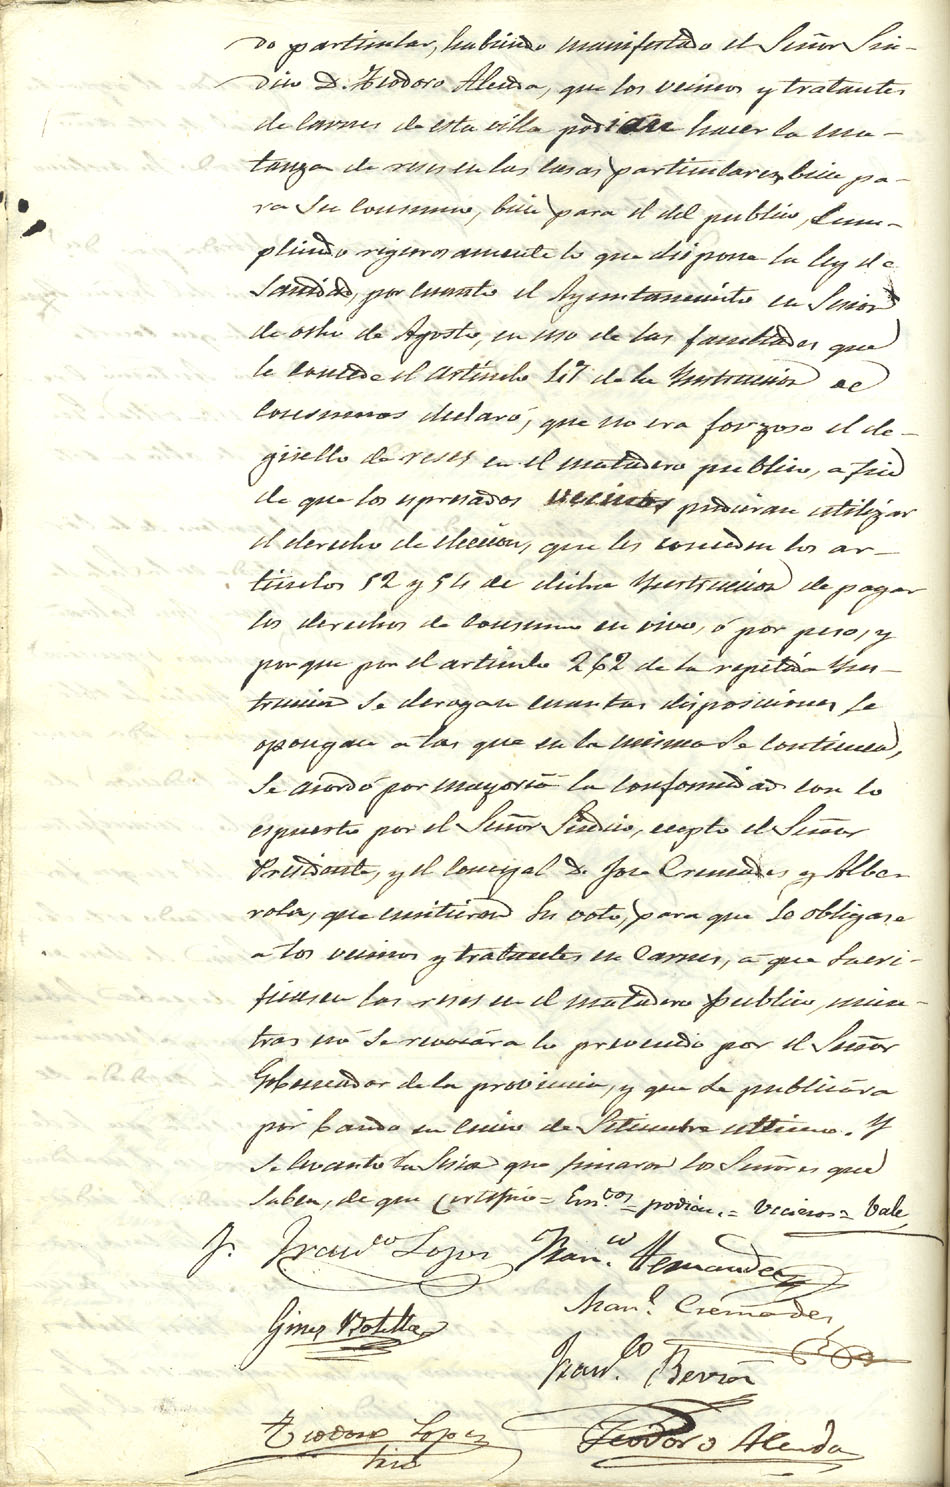 do particular, habiendo manifestado el Señor Sin-
dico D. Teodoro Alenda, que los vecinos y tratantes
de carnes de esta villa podian hacer la ma-
tanza de reses en las casas particulares, bien pa-
ra su consumo, bien para el del publico, cum-
pliendo rigurosamente lo que dispone la ley de
Sanidad, por cuanto el Ayuntamiento en Sesion
de ocho de Agosto, en uso de las facultades que
le concede el articulo 147 de la Ynstruccion de
consumos declaró, que no era forzoso el de-
güello de reses en el matadero publico, a fin
de que los espresados vecinos pudieran utilizar
el derecho de eleccion, que les conceden los ar-
ticulos 52 y 54 de dicha Ynstruccion de pagar
los derechos de consumo en vivo, ó por peso, y
porque por el articulo 262 de la repetida Yns-
truccion se derogan cuantas disposiciones se
opongan a las que en la misma se contienen,
se acordó por mayoria la conformidad con lo
espuesto por el Señor Sindico, ecepto el Señor
Presidente, y el concejal D. Jose Cremades y Albe-
rola, que emitieron su voto, para que se obligase
a los vecinos y tratantes en carnes, á que sacri-
ficasen las reses en el matadero publico, mien-
tras nó se revocára lo prevenido por el Señor
Gobernador de la provincia, y que se publicára
por bando en cinco de Setiembre ultimo. Y
se levantó la Sesion que firmaron los Señores que
saben, de que certifico = Em.dos = podian = vecinos = Vale
P. Fran.co Lopez Fran.co Hernandez
Man.l Cremades
Gines Botella
Fran.co Berna
Teodoro Lopez
Teodoro Alenda